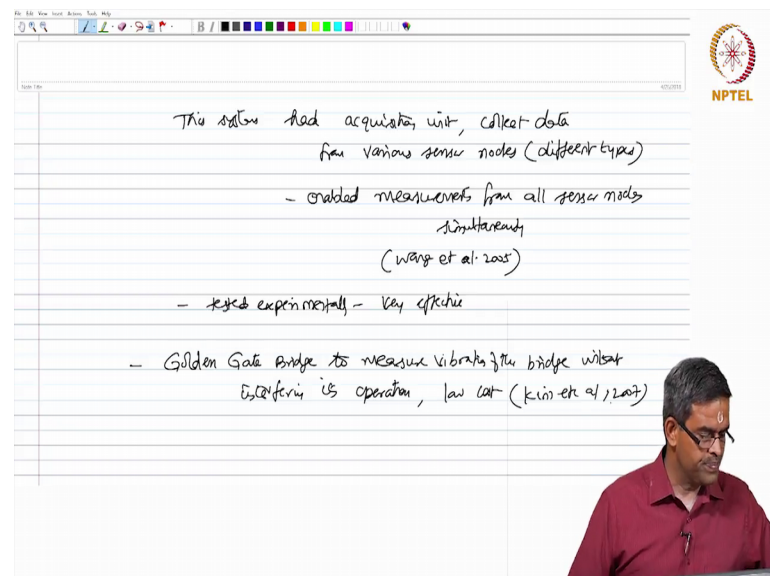 File Edit View Insert Actions Tools Help
B I
Note Title
4/25/2018
NPTEL
This system had acquisition unit, collect data
from various sensor nodes (different types)
- enabled measurements from all sensor nodes
simultaneously
(Wang et al. 2005)
- tested experimentally - very effective
- Golden Gate Bridge to measure vibration of the bridge without
interfering is operation, low cost (Kim et al, 2007)